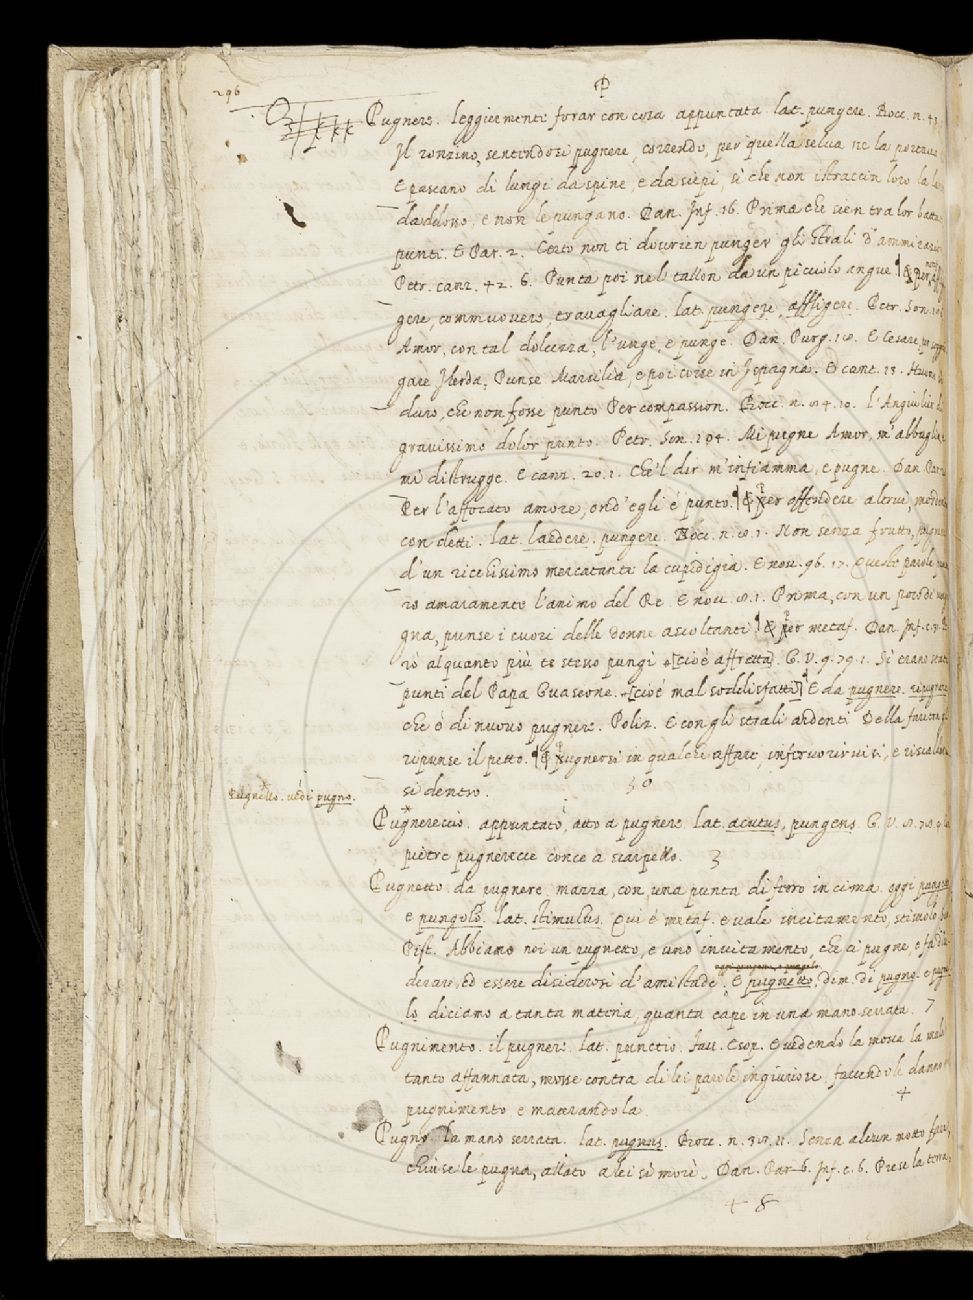 P
296
Pugnere. leggiermente forar con cosa appuntata. lat. pungere. Bocc. n. 43.
Il ronzino, sentendosi pugnere, correndo, per quella selva ne la portava
E pascano di lungi da spine, e da siepi, sì che non istraccin loro la
da dosso, e non le pungano. Dan. Inf. 16. Prima che sien tra lor
punti. E Par. 2. Certo non ti dovrien punger gli strali d'ammirazion
Petr. canz. 42. 6. Punta poi nel tallon da un picciolo angue. & per
gere, commuovere, travagliare. lat. pungere, affligere. Petr. Son.
Amor, con tal dolcezza, l'unge, e punge. Dan. Purg. 18. E Cesare, per
gare Ilerda, Punse Marsilia, e poi corse in Ispagna. E cant. 13.
duro, che non fosse punto Per compassion. Bocc. n. 84. 10. l'Angiulier
gravissimo dolor punto. Petr. Son. 104. Mi pugne Amor, m'abbaglia
mi distrugge. E canz. 20. 1. Che'l dir m'infiamma, e pugne. Dan. Par.
Per l'affocato amore, ond'egli è punto. & per offendere altrui,
con detti. lat. laedere. pungere. Bocc. n. 8. 1. Non senza frutto,
d'un ricchissimo mercatante la cupidigia. E nov. 96. 17. Queste parole
ro amaramente l'animo del Re. E nov. 8. 1. Prima, con un poco di
gna, punse i cuori delle donne ascoltanti & per metaf. Dan. Inf. c.
rò alquanto più te stesso pungi [cioè affretta]. G. V. 9. 79. 1. Si erano
punti del Papa Guascone. [cioè mal soddisfatti] E da pugnere. ripugnere
che è di nuovo pugnere. Poliz. E con gli strali ardenti Della
ripunse il petto. & pugnersi in qualche affare, infervorirvisi, e
si dentro. 30
Pugnello. vedi pugno.
Pugnereccio. appuntato, atto a pugnere. lat. acutus, pungens. G. V. 8.
pietre pugnerecce conce a scarpello. 3
Pugnetto. da pugnere, mazza, con una punta di ferro in cima. oggi
e pungolo. lat. stimulus. Qui è metaf. e vale incitamento, stimolo.
Pist. Abbiamo noi un pugnetto, e uno invitamento, che ci pugne, e
derare, ed essere disiderosi d'amistade. E pugnetto, dim. di pugno. e
lo diciamo a tanta materia, quanta cape in una mano serrata. 7
Pugnimento. il pugnere. lat. punctio. Fav. Esop. E vedendo la mosca la
tanto affannata, mosse contra di lei parole ingiuriose, faccendole danno
pugnimento e macerandola. 4
Pugno. la mano serrata. lat. pugnus. Bocc. n. 38. 11. Senza alcun motto fare,
chiuse le pugna, allato a lei si morì. Dan. Inf. c. 6. Prese la terra,
+ 8